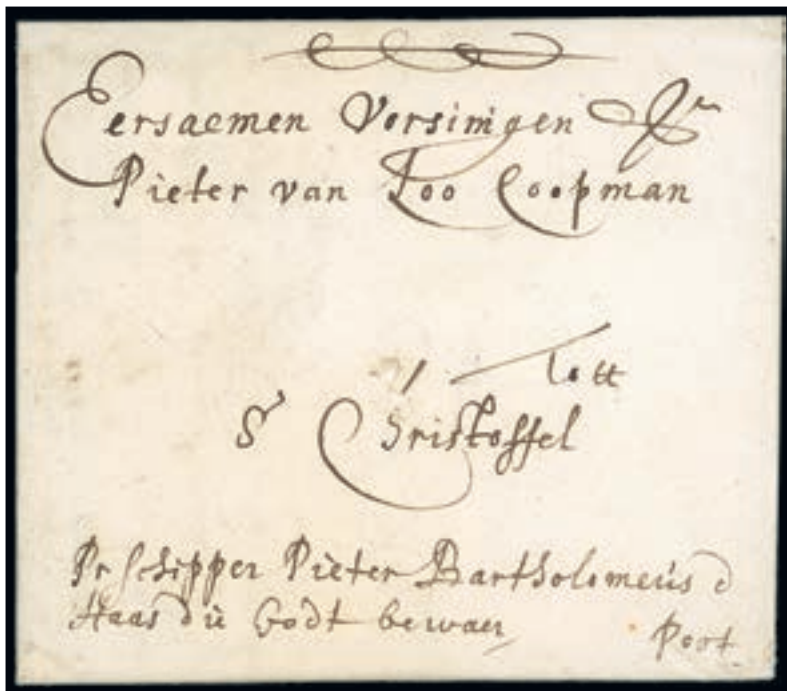 Eersaemen Vorsinigen Sr
Pieter van Loo Coopman
1 lott
St Christoffel
Pr Schipper Pieter Bartholomeus d
Haas die Godt bewaer
Poot